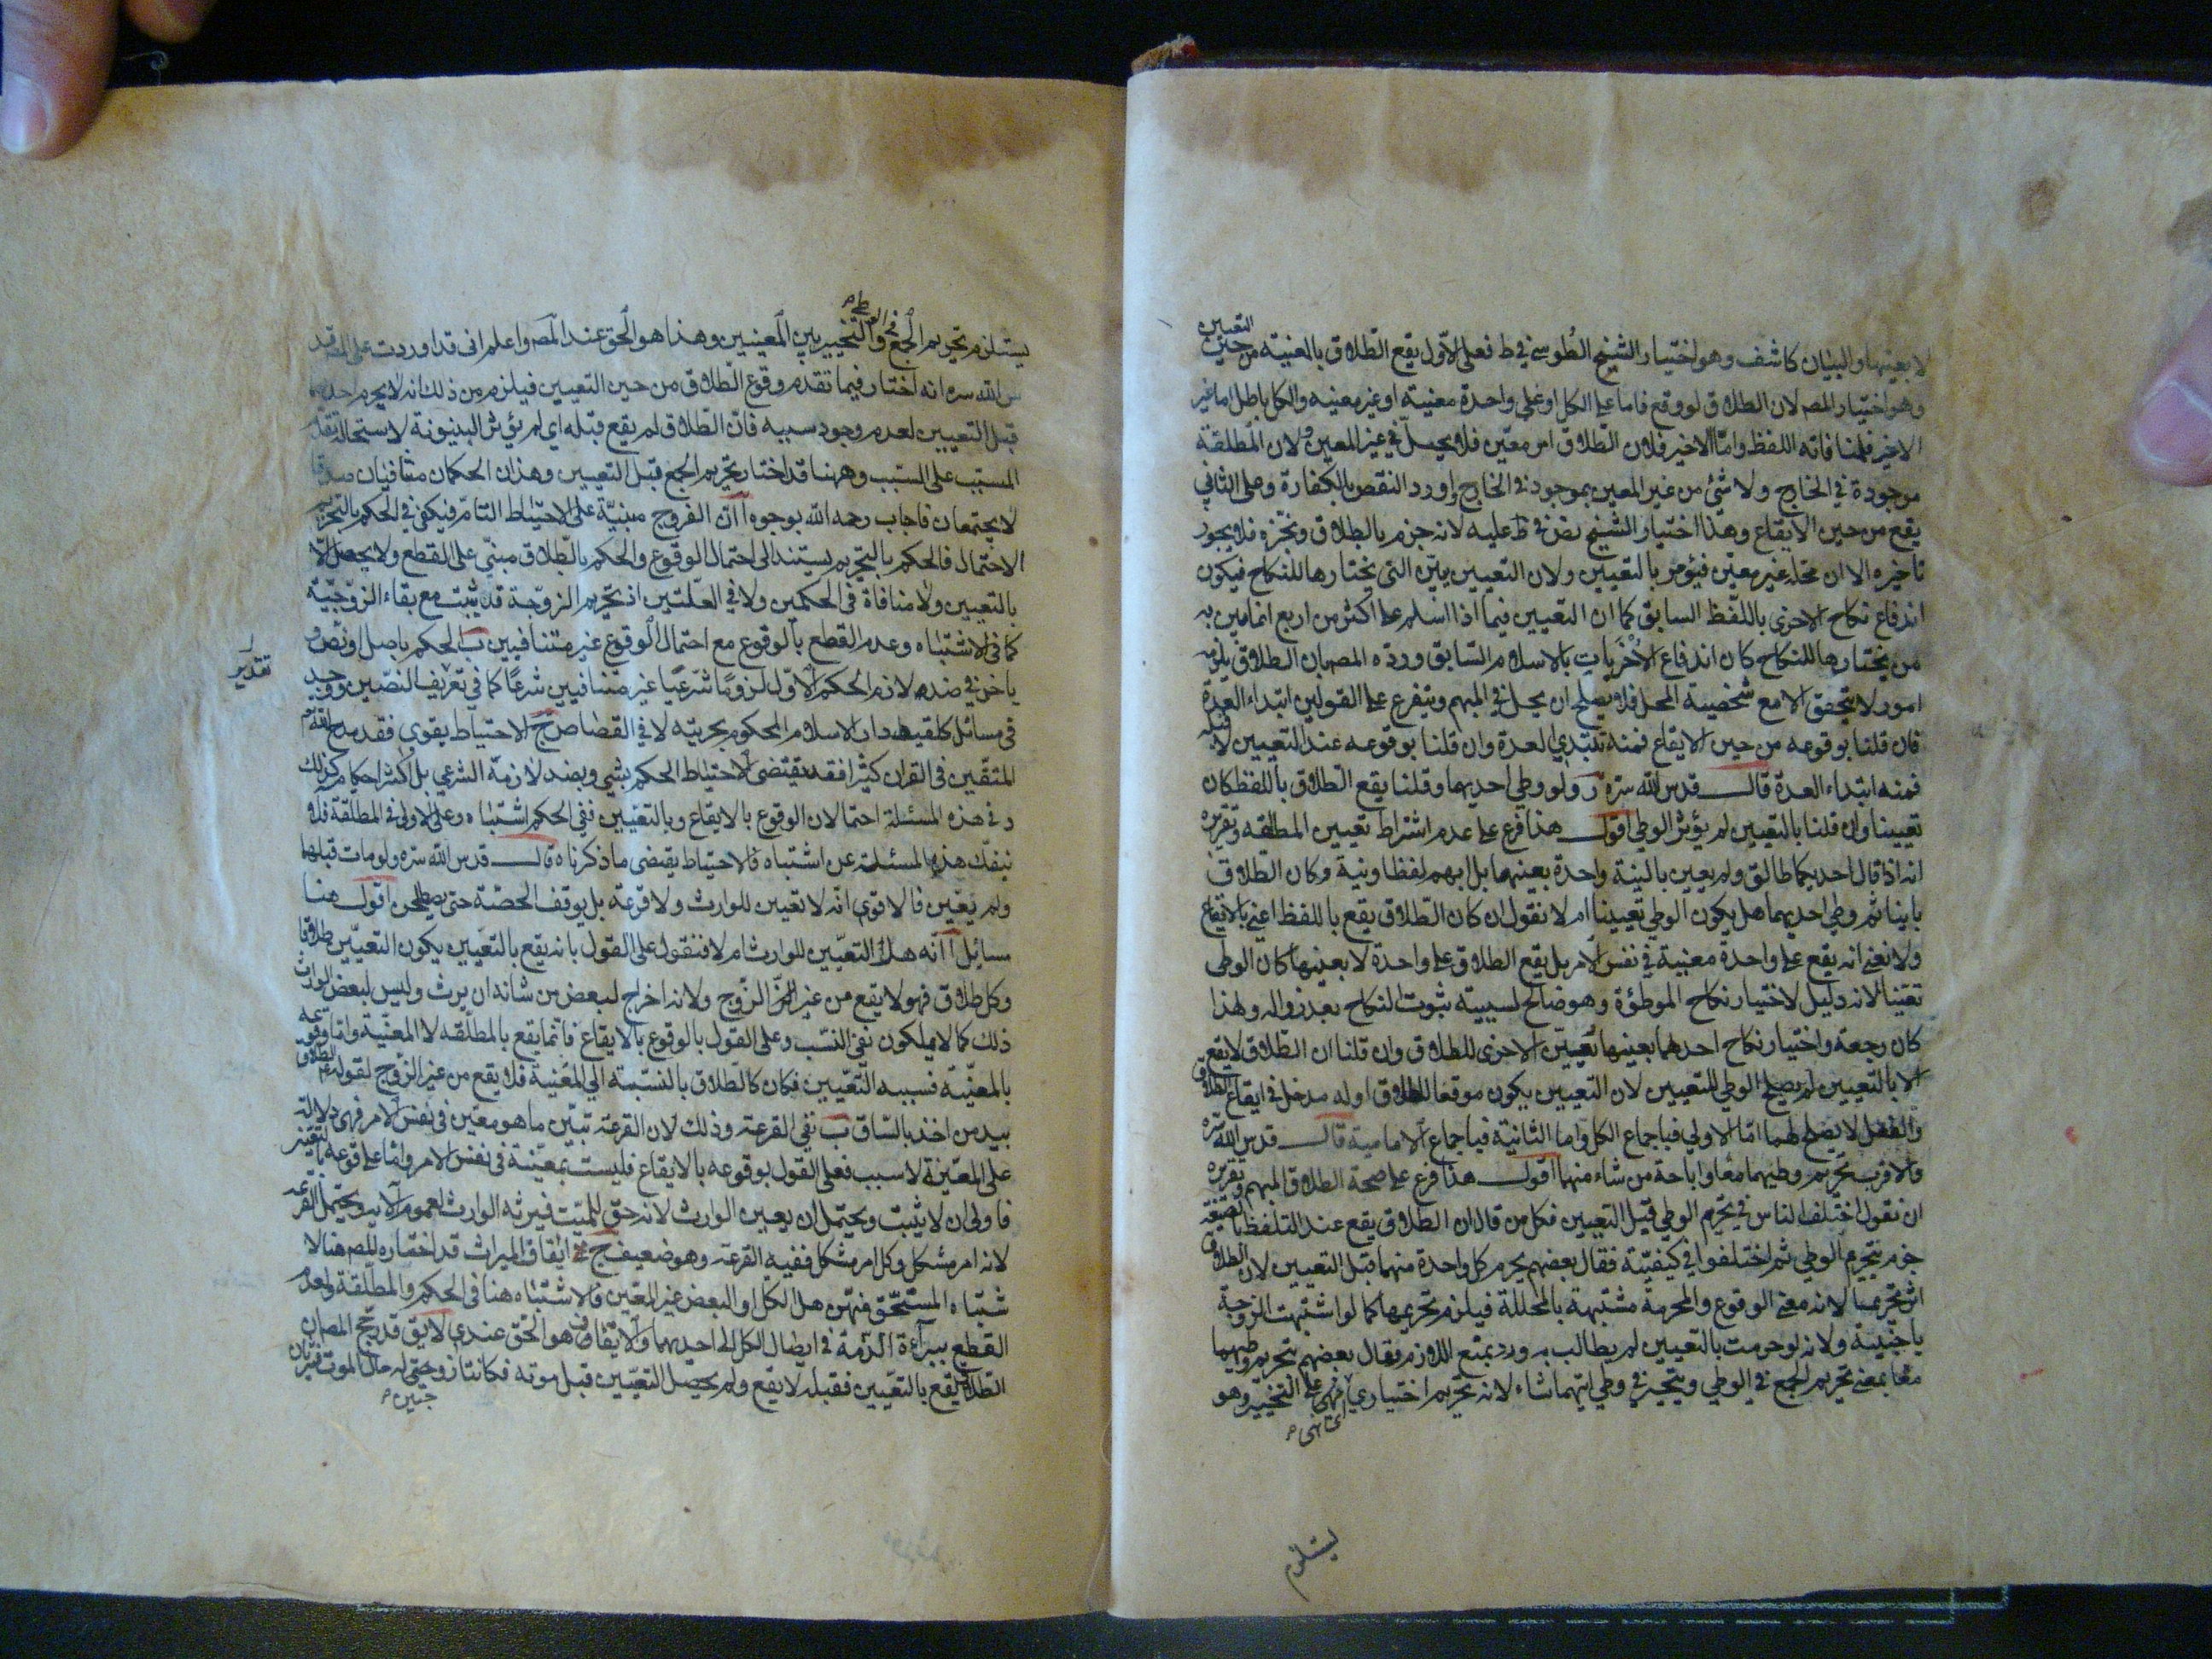 لا بعينها والبيان كاشف وهو اختيار الشيخ الطوسي في ط فعلى الاول يقع الطلاق بالمعينة من حين التعيين
وهو اختيار المصه لان الطلاق لو وقع فاما على الكل او على واحدة معينة او غير معينه والكل باطل اما غير
الاخير فلمنافاته اللفظ واما الاخير فلان الطلاق امر معين فلا يحصل في غير المعين ولان المطلقة
موجودة في الخارج ولا شئ من غير المعين بموجود في الخارج واورد النقض بالكفارة وعلى الثاني
يقع من حين الايقاع وهذا اختيار الشيخ نص في ط عليه لانه جزم بالطلاق ونجزه فلا يجوز
تاخيره الا ان محله غير معين فيؤمر بالتعيين ولان التعيين يبين التي يختارها للنكاح فيكون
اندفاع نكاح الاخرى باللفظ السابق كما ان التعيين فيما اذا اسلم على اكثر من اربع انما يبين به
من يختارها للنكاح كان اندفاع الاخريات بالاسلام السابق ورده المصه بان الطلاق يلزمه
امور لا يتحقق الا مع شخصية المحل فلا يصلح ان يحل في المبهم ويتفرع على القولين ابتداء العدة
فان قلنا بوقوعه من حين الايقاع فمنه تبتدي العدة وان قلنا بوقوعه عند التعيين لا قبله
فمنه ابتداء العدة قال قدس الله سره ولو وطي احديهما وقلنا يقع الطلاق باللفظ كان
تعيينا وان قلنا بالتعيين لم يؤثر الوطي اقول هذا فرع على عدم اشتراط تعيين المطلقه وتقريره
انه اذا قال احديكما طالق ولم يعين بالنية واحدة بعينها بل ابهم لفظا ونية وكان الطلاق
باينا ثم وطي احديهما هل يكون الوطي تعيينا ام لا نقول ان كان الطلاق يقع باللفظ اعني بالايقاع
ولا نعني انه يقع على واحدة معينة في نفس الامر بل يقع الطلاق على واحدة لا بعينها كان الوطي
تعيينا لانه دليل لاختيار نكاح الموطؤة وهو صالح لسببية ثبوت النكاح بعد زواله ولهذا
كان رجعة واختيار نكاح احدهما بعينها تعيين الاخرى للطلاق وان قلنا ان الطلاق لا يقع
الا بالتعيين لم يصلح الوطي للتعيين لان التعيين يكون موقعا للطلاق اوله مدخل في ايقاع الطلاق
والفعل لا يصلح لهما اما الاولى فباجماع الكل واما الثانية فباجماع الامامية قال قدس الله سره
والاقرب تحريم وطيهما معا واباحة من شاء منهما اقول هذا فرع على صحة الطلاق المبهم وتقريره
ان نقول اختلف الناس في تحريم الوطي قبل التعيين فكل من قال ان الطلاق يقع عند التلفظ بالصيغة
جزم بتحريم الوطي ثم اختلفوا في كيفيته فقال بعضهم يحرم كل واحدة منهما قبل التعيين لان الطلاق
اثر تحريما لانه معنى الوقوع والمحرمة مشتبهة بالمحللة فيلزم تحريمها كما لو اشتبهت الزوجة
باجنبية ولانه لو حرمت بالتعيين لم يطالب به ورد بمنع اللازم فقال بعضهم بتحريم وطيهما
معا بمعنى تحريم الجمع في الوطي ويتخير في وطي ايتهما شاء لانه تحريم اختياري نهى على التخيير وهو
يستلزم
يستلزم تحريم الجمع في الوطي والتخيير بين المعينين وهذا هو الحق عند المصه واعلم اني قد اوردت على المصه قد
س الله سره انه اختار فيما تقدم وقوع الطلاق من حين التعيين فيلزم من ذلك انه لا يحرم احديهما
قبل التعيين لعدم وجود سببه فان الطلاق لم يقع قبله اي لم يؤثر البينونة لاستحالة تقدم
المسبب على السبب وههنا قد اختار تحريم الجمع قبل التعيين وهذان الحكمان متنافيان صدقا
لا يجتمعان فاجاب رحمه الله بوجوه آ ان الفروج مبنية على الاحتياط التام فيكفي في الحكم بالتحريم
الاحتمال فالحكم بالتحريم يستند الى احتمال الوقوع والحكم بالطلاق مبني على القطع ولا يحصل الا
بالتعيين ولا منافاة في الحكمين ولا في العلتين اذ تحريم الزوجة قد يثبت مع بقاء الزوجية
كما في الاشتباه وعدم القطع بالوقوع مع احتمال الوقوع غير متنافيين ب الحكم باصل او نص و
تقدير
ياخر في ضده لازم الحكم الاول لزوما شرعيا غير متنافيين شرعا كما في تعريف النصين ووجد
في مسائل كلقيط دار الاسلام المحكوم بحريته لا في القصاص ج الاحتياط يقوى فقد مدح الله تعه
المتقين في القران كثيرا فقد يقتضي الاحتياط الحكم بشي وبضد لازمه الشرعي بل اكثر احكامه كذلك
و في هذه المسئلة احتمالان الوقوع بالايقاع وبالتعيين ففي الحكم اشتباه وعلى الاولى في المطلقة فلا
تنفك هذه المسئلة عن اشتباه فالاحتياط يقتضي ما ذكرناه قال قدس الله سره ولو مات قبلهما
ولم يعين فالاقوى انه لا تعيين للوارث ولا قرعة بل يوقف الحصة حتى يصطلحن اقول هنا
مسائل آ انه هل التعيين للوارث ام لا فنقول على القول بانه يقع بالتعيين يكون التعيين طلاقا
وكل طلاق فهو لا يقع من غير الزوج ولانه اخراج لبعض من شانه ان يرث وليس لبعض الوراث
ذلك كما لا يملكون نفي النسب وعلى القول بالوقوع بالايقاع فانما يقع بالمطلقه لا المعينة واما وقوعه
بالمعينة فسببه التعيين فكان كالطلاق بالنسبة الى المعينة فلا يقع من غير الزوج لقوله ع الطلاق
بيد من اخذ بالساق ب نفي القرعة وذلك لان القرعة تبين ما هو معين في نفس الامر فهي دلالة
على المعينة لا سبب فعلى القول بوقوعه بالايقاع فليست بمعينة في نفس الامر واما على وقوعه بالتعيين
فاولى ان لا يثبت ويحتمل ان يعين الوارث لانه حق للميت فيرثه الوارث لعموم الاية ويحتمل القرعة
لانه امر مشكل وكل امر مشكل ففيه القرعة وهو ضعيف ج في ايقاف الميراث قد اختاره المصه هنا لا
شتباه المستحق فهن هل الكل او البعض غير المعين فالاشتباه هنا في الحكم والمطلقة ولعدم
القطع ببراءة الذمة في ايصال الكل الى احديهما والايقاف هو الحق عندي لايق قد رجح المصه ان
الطلاق يقع بالتعيين فقبله لا يقع ولم يحصل التعيين قبل موته فكانتا زوجتين له حال الموت فترثان